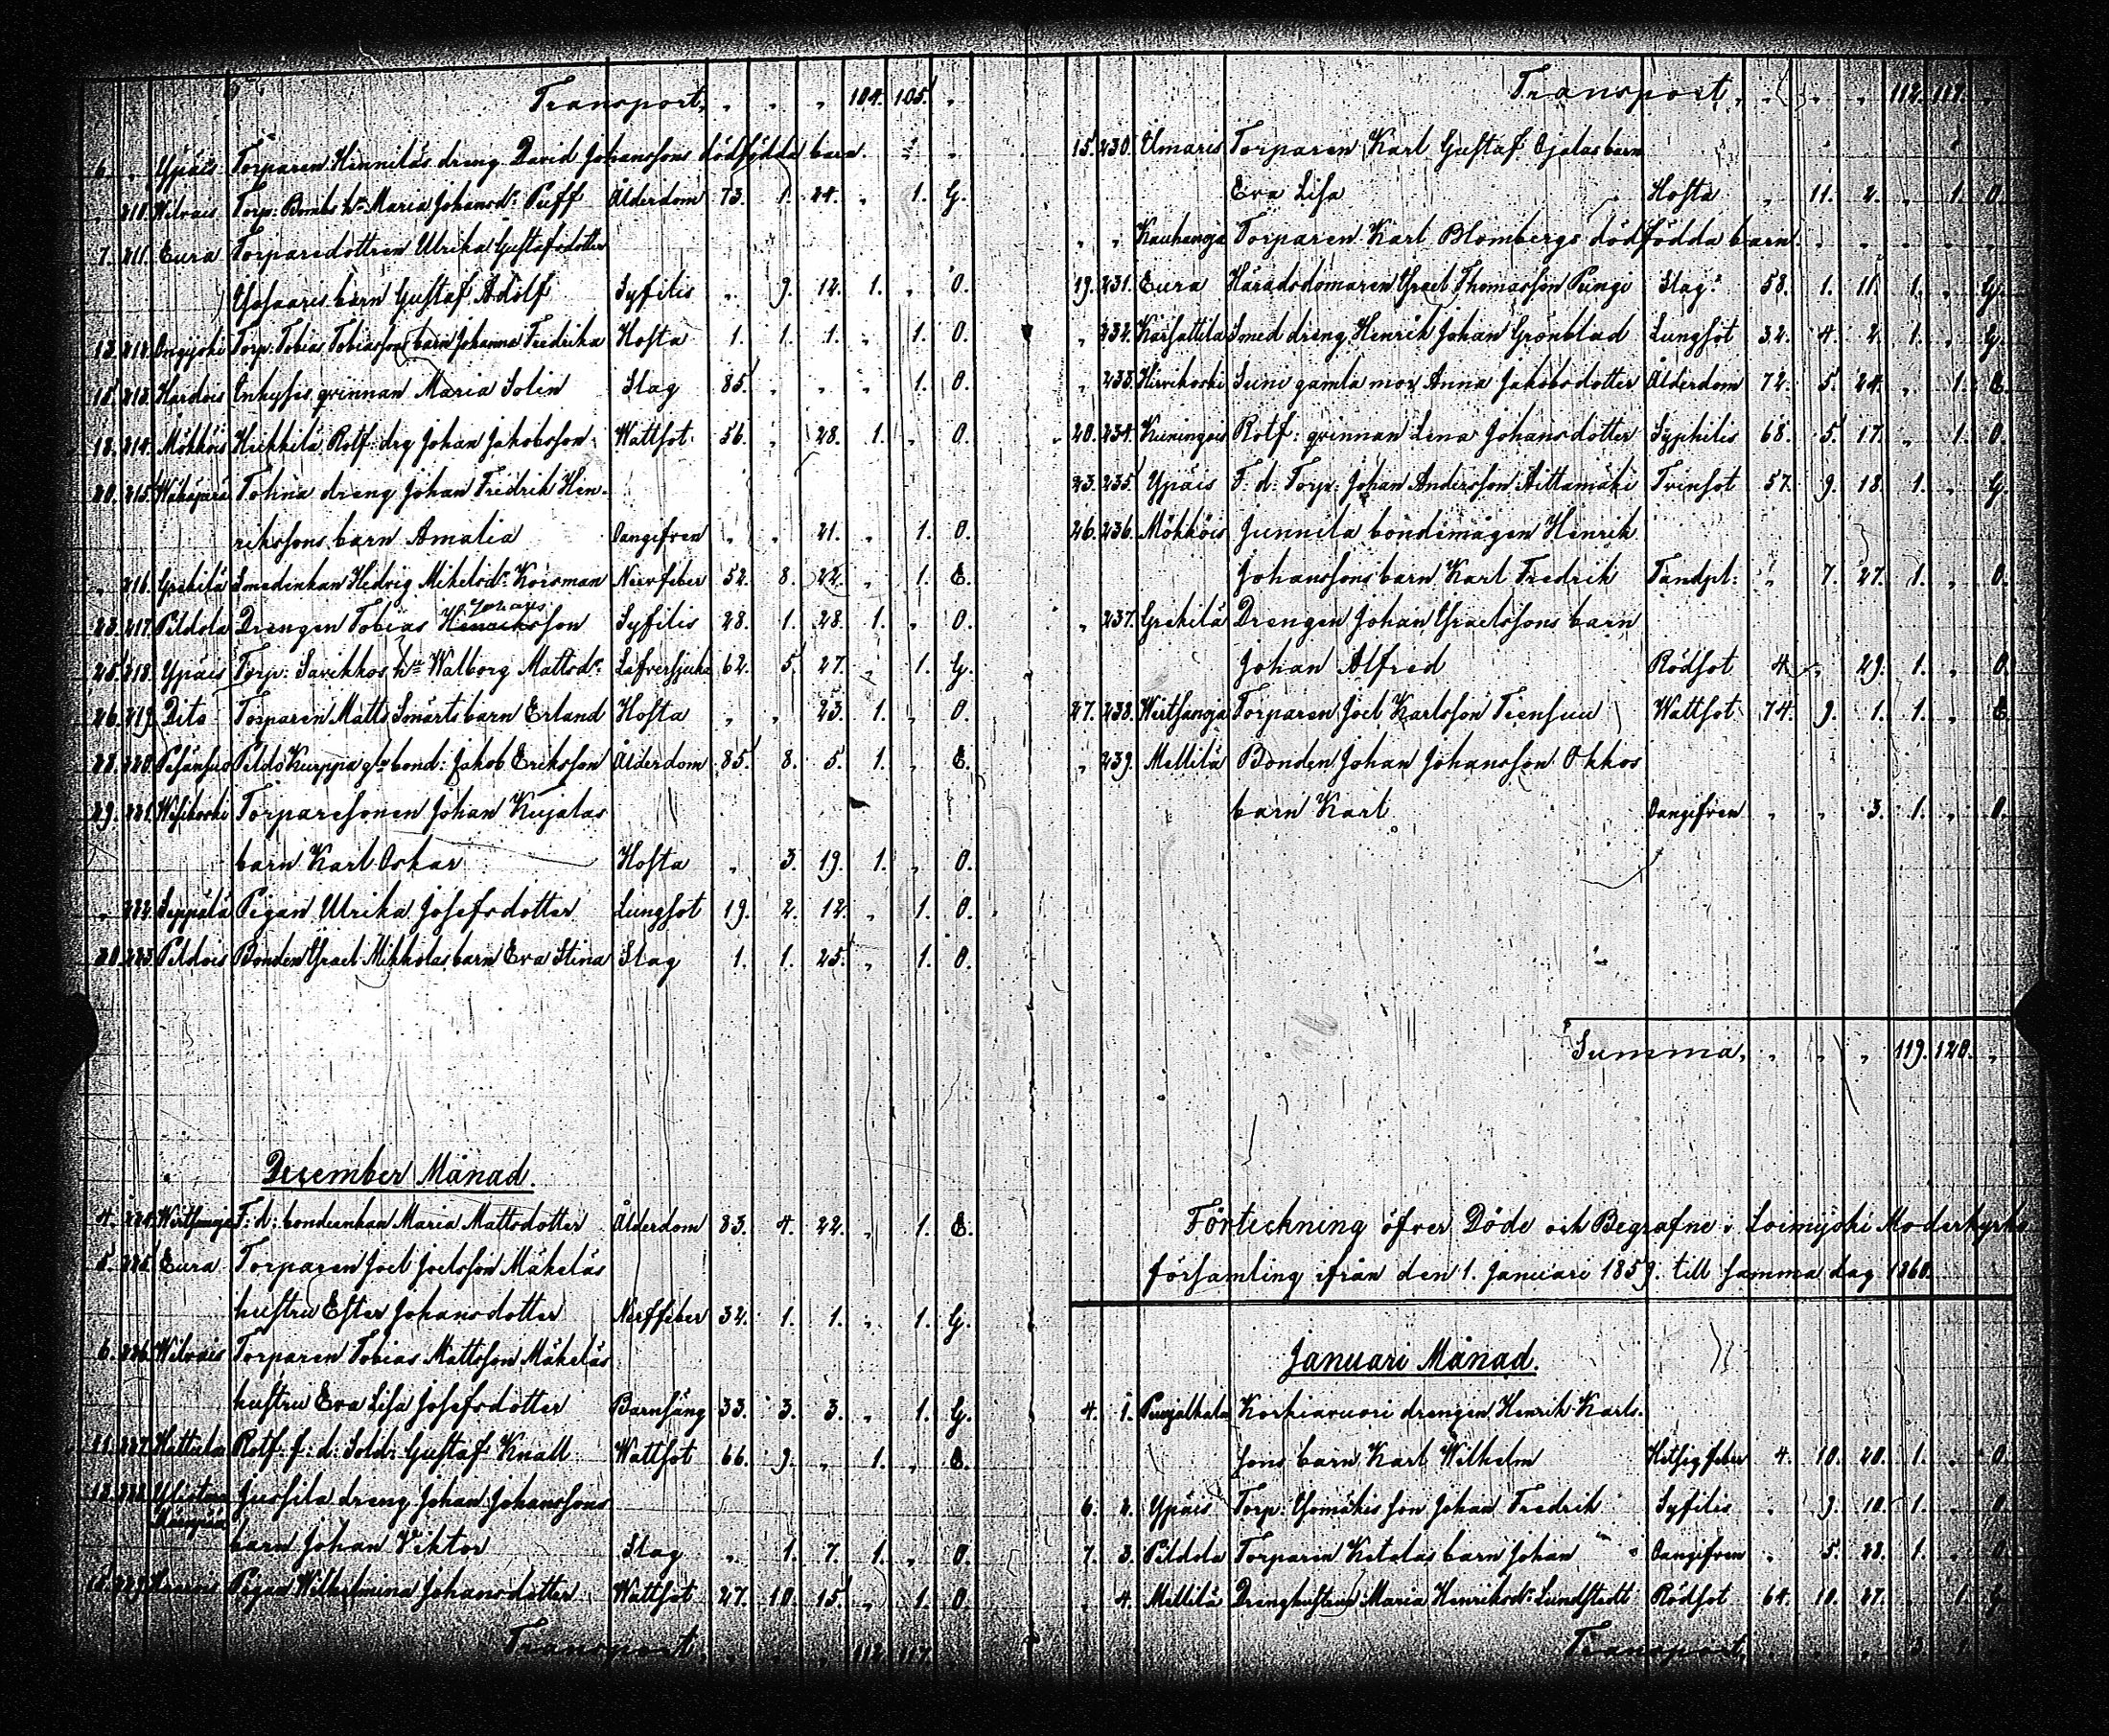 Transport, „ „ „ 104. 105. „
6. „ Ypäis Torparen Hinniläs dreng David Johanssons dödfödda barn. „ „ „
„ 210. Wilvais Torp: Bombs h:u Maria Johansdr: Puff Ålderdom 73. 1. 24. „ 1. G.
7. 211. Eura Torparedottren Ulrika Gustafsdotter
barn Gustaf Adolf Syfilis „ 9. 12. 1. „ O.
13. 212. Onnyjoki Torp: Tobias Tobiassons barn Johanna Fredrika Hosta 1. 1. 1. „ 1. O.
15. 213. Kardois Inhyses qvinnan Maria Solin Slag 85. „ „ „ 1. O.
18. 214. Mökköis Heikkilä Rotf: drg Johan Jakobsson Wattsot 56. „ 28. 1. „ O.
20. 215. Tohna dreng Johan Fredrik Hen-
rikssons barn Amalia Oangifven „ „ 21. „ 1. O.
„ 216. Grekilä Smedenkan Hedvig Mikelsdr: Korsman Nervfeber 52. 8. 22. „ 1. E.
23. 217. Peldola Drengen Tobias Henriksson Syfilis 28. 1. 28. 1. „ O.
Johans
25. 218. Ypäis Torp: Savikkos h:u Walborg Mattsdr: Lefversjuka 62. 5. 27. „ 1. G.
26. 219. Dito Torparen Matts Smärts barn Erland Hosta „ „ 23. 1. „ O.
28. 220. Pesänsuo Peldo Kurppa gl: bond: Jakob Eriksson Ålderdom 85. 8. 5. 1. „ E.
29. 221. Wesikoski Torparesonen Johan Kujalas
barn Karl Oskar Hosta „ 3. 19. 1. „ O.
„ 222. Seppälä Pigan Ulrika Josefsdotter Lungsot 19. 2. 12. „ 1. O.
30. 223. Peldois Bonden Israel Mikkolas barn Eva Stina Slag 1. 1. 25. „ 1. O.
December Månad.
4. 224. Wirtsanoja F: d: bondenkan Maria Mattsdotter Ålderdom 83. 4. 22. „ 1. E.
5. 225. Eura Torparen Joel Joelsson Mäkeläs
hustru Ester Johansdotter Nerffeber 32. 1. 1. „ 1. G.
6. 226. Wilvais Torparen Tobias Mattsson Mäkeläs
hustru Eva Lisa Josefsdotter Barnsäng 33. 3. 3. „ 1. G.
11. 227. Hattula Rotf. f: d: Sold: Gustaf Knall Wattsot 66. 9. „ 1. „ E.
13. 228. Jussila dreng Johan Johanssons
barn Johan Viktor Slag „ 1. 7. 1. „ O.
15. 229. Pigan Wilhelmina Johansdotter Wattsot 27. 10. 15. „ 1. O.
Transport, „ „ „ 112. 117.
Transport, „ „ „ 112. 117. „
15. 230. Elmaris Torparen Karl Gustaf Ojalas barn
Eva Lisa Hosta „ 11. 2. „ 1. O.
„ „ Kauhanoja Torparen Karl Blombergs dödfödda barn. „ „ „ „ „
19. 231. Eura Häradsdomaren Israel Thomasson Pungi Slag: 58. 1. 11. 1. „ G.
„ 232. Karsattila Smed dreng Henrik Johan Grönblad Lungsot 32. 4. 2. 1. „ G.
„ 233. Hirvikoski Suni gamla mor Anna Jakobsdotter Ålderdom 72. 5. 24. „ 1. E.
20. 234. Kuningois Rotf: qvinnan Lena Johansdotter Syphilis 68. 5. 17. „ 1. O.
23. 235. Ypäis F: d: Torp: Johan Andersson Aittamäki Tvinsot 57. 9. 18. 1. „ G.
26. 236. Mökköis Junnila bondemågen Henrik
Johanssons barn Karl Fredrik Tandpl: „ 7. 27. 1. „ O.
„ 237. Grekilä Drengen Johan Israelssons barn
Johan Alfred Rödsot 4. „ 29. 1. „ O.
27. 238. Wirtsanoja Torparen Joel Karlsson Tiensuu Wattsot 74. 9. 1. 1. „ E.
„ 239. Mellilä Bonden Johan Johansson Okkos
barn Karl Oangifven „ „ 3. 1. „ O.
Summa, „ „ „ 119. 120. „
Förteckning öfver Döde och Begrafne i Loimijoki Moderkyrko
församling ifrån den 1. Januari 1859. till samma dag 1860.
Januari Månad.
4. 1. Korkiavuori drengen Henrik Karls-
sons barn Karl Wilhelm Hetsigfeber 4. 10. 20. 1. „ O.
6. 2. Ypäis Torp: Isomäkis son Johan Fredrik Syfilis „ 9. 10. 1. „ O.
7. 3. Peldola Torparen Ketolas barn Johan Oangifven „ 5. 28. 1. „ O.
„ 4. Mellilä Drenghustrun Maria Henriksdr: Lundstedt Rödsot 64. 10. 27. „ 1. G.
Transport, „ „ „ 3. 1.